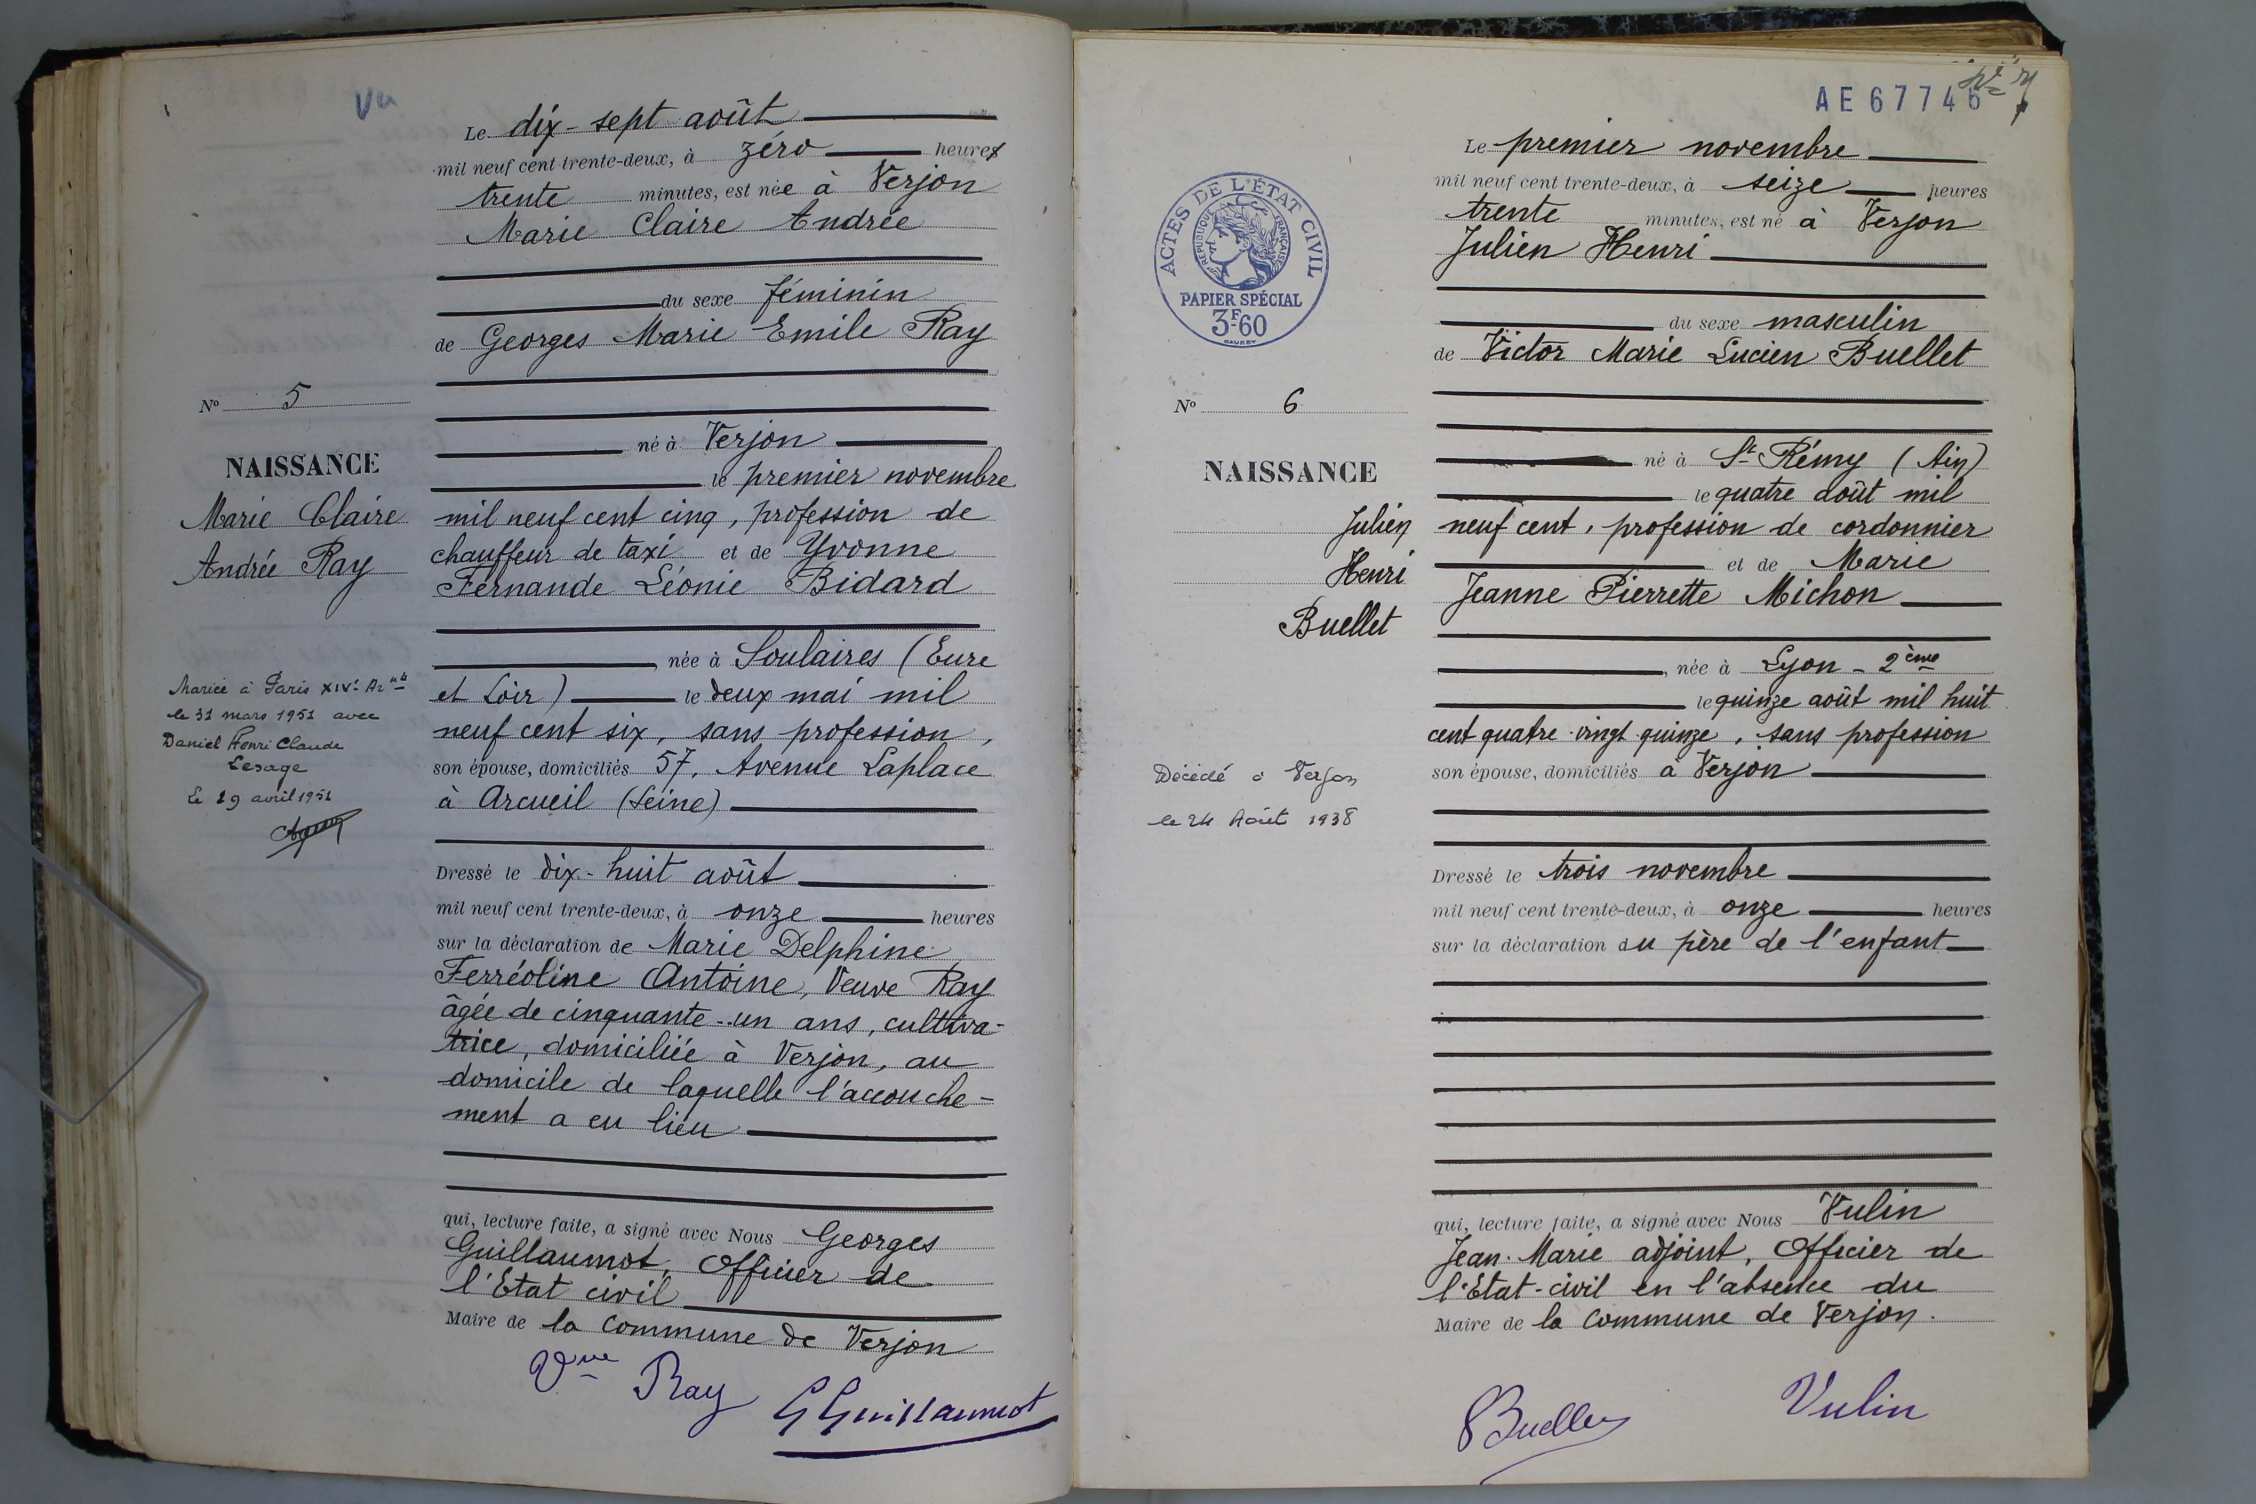 Vu
Le dix-sept août
mil neuf cent trente-deux, à zéro heures
trente minutes, est née à Verjon
Marie Claire Andrée
du sexe féminin
de Georges Marie Emile Ray
né à Verjon
le premier novembre
mil neuf cent cinq, profession de
chauffeur de taxi et de Yvonne
Fernande Léonie Bidard
née à Soulaires (Eure
et Loir) le deux mai mil
neuf cent six, sans profession,
son épouse, domiciliés 57, Avenue Laplace
à Arcueil (Seine)
Dressé le dix-huit août
mil neuf cent trente-deux, à onze heures
sur la déclaration de Marie Delphine
Ferréoline Antoine, Veuve Ray
âgée de cinquante-un ans, cultiva-
trice, domiciliée à Verjon, au
domicile de laquelle l'accouche-
ment a eu lieu
qui, lecture faite, a signé avec Nous Georges
Guillaumot, Officier de
l'Etat civil
Maire de la Commune de Verjon
Vve Ray
G Guillaumot
No 5
NAISSANCE
Marie Claire
Andrée Ray
Mariée à Paris XIVe Art
le 31 mars 1951 avec
Daniel Henri Claude
Lesage
Le 19 avril 1951
AE 67746
ACTES DE L'ÉTAT CIVIL
RÉPUBLIQUE FRANÇAISE
PAPIER SPÉCIAL
3F60
Le premier novembre
mil neuf cent trente-deux, à seize heures
trente minutes, est né à Verjon
Julien Henri
du sexe masculin
de Victor Marie Lucien Buellet
né à St Rémy (Ain)
le quatre août mil
neuf cent, profession de cordonnier
et de Marie
Jeanne Pierrette Michon
née à Lyon - 2ème
le quinze août mil huit
cent quatre-vingt quinze, sans profession
son épouse, domiciliés à Verjon
Dressé le trois novembre
mil neuf cent trente-deux, à onze heures
sur la déclaration du père de l'enfant
qui, lecture faite, a signé avec Nous Vulin
Jean-Marie adjoint, Officier de
l'Etat-civil en l'absence du
Maire de la Commune de Verjon.
Buellet
Vulin
No 6
NAISSANCE
Julien
Henri
Buellet
Décédé à Verjon
le 24 Août 1938